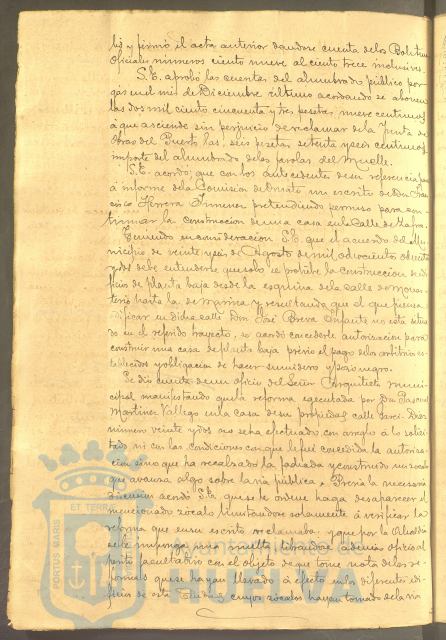 bó y firmó el acta anterior dandose cuenta de los Boletines
Oficiales números ciento nueve al ciento trece inclusives.
S.E. aprobó las cuentas del alumbrado público por
gas en el mes de Diciembre último acordando se abonen
las dos mil ciento cincuenta y tres pesetas nueve centimos
á que asciende sin perjuicio de reclamar de la Junta de
Obras del Puerto las seis pesetas setenta y seis centimos
importe del alumbrado de las farolas del Muelle.
S.E. acordó que con los antecedentes de su referencia pase
á informe de la Comision de Ornato un escrito de Don Fran
cisco Herrera Jimenez pretendiendo permiso para con
tinuar la construccion de una casa en la Calle de Zafra.
Teniendo en consideracion S.E. que el acuerdo del Mu
nicipio de veinte y seis de Agosto de mil ochocientos ochenta
debe entenderse que solo se prohibe la construccion de edi
ficios de planta baja desde la esquina de la calle de Monas
terio hasta la de Marina y resultando que el que piensa
edificar en dicha calle Don José Breva Infante no está situa
do en el referido trayecto, se acordó concederle autorizacion para
construir una casa de planta baja previo el pago de los arbitrios es
tablecidos y obligacion de hacer sumidero y pozo negro.
Se dió cuenta de un oficio del Señor Arquitecto muni
cipal manifestando que la reforma ejecutada por Don Pascual
Martinez Vallejo en la casa de su propiedad, calle
número veinte y dos no se ha efectuado con arreglo á lo solici
tado, ni con las condiciones con que le fué concedida la autoriza
cion sino que ha recalzado la fachada y construido un zócalo
que avanza algo sobre la vía pública. Previa la necesaria
discusion acordó S.E. que se le ordene haga desaparecer el
mencionado zócalo limitandose solamente á verificar la
reforma que en su escrito reclamaba, y que por la Alcaldia
se le imponga una multa librandose ademas oficio al
perito facultativo con el objeto de que tome nota de las re
formas que se hayan llevado á efecto en los diferentes edi
ficios de esta Ciudad, cuyos zócalos hayan tomado de la via
PORTUS MARIS
ET TERRAE
Ayuntamiento de
HUELVA